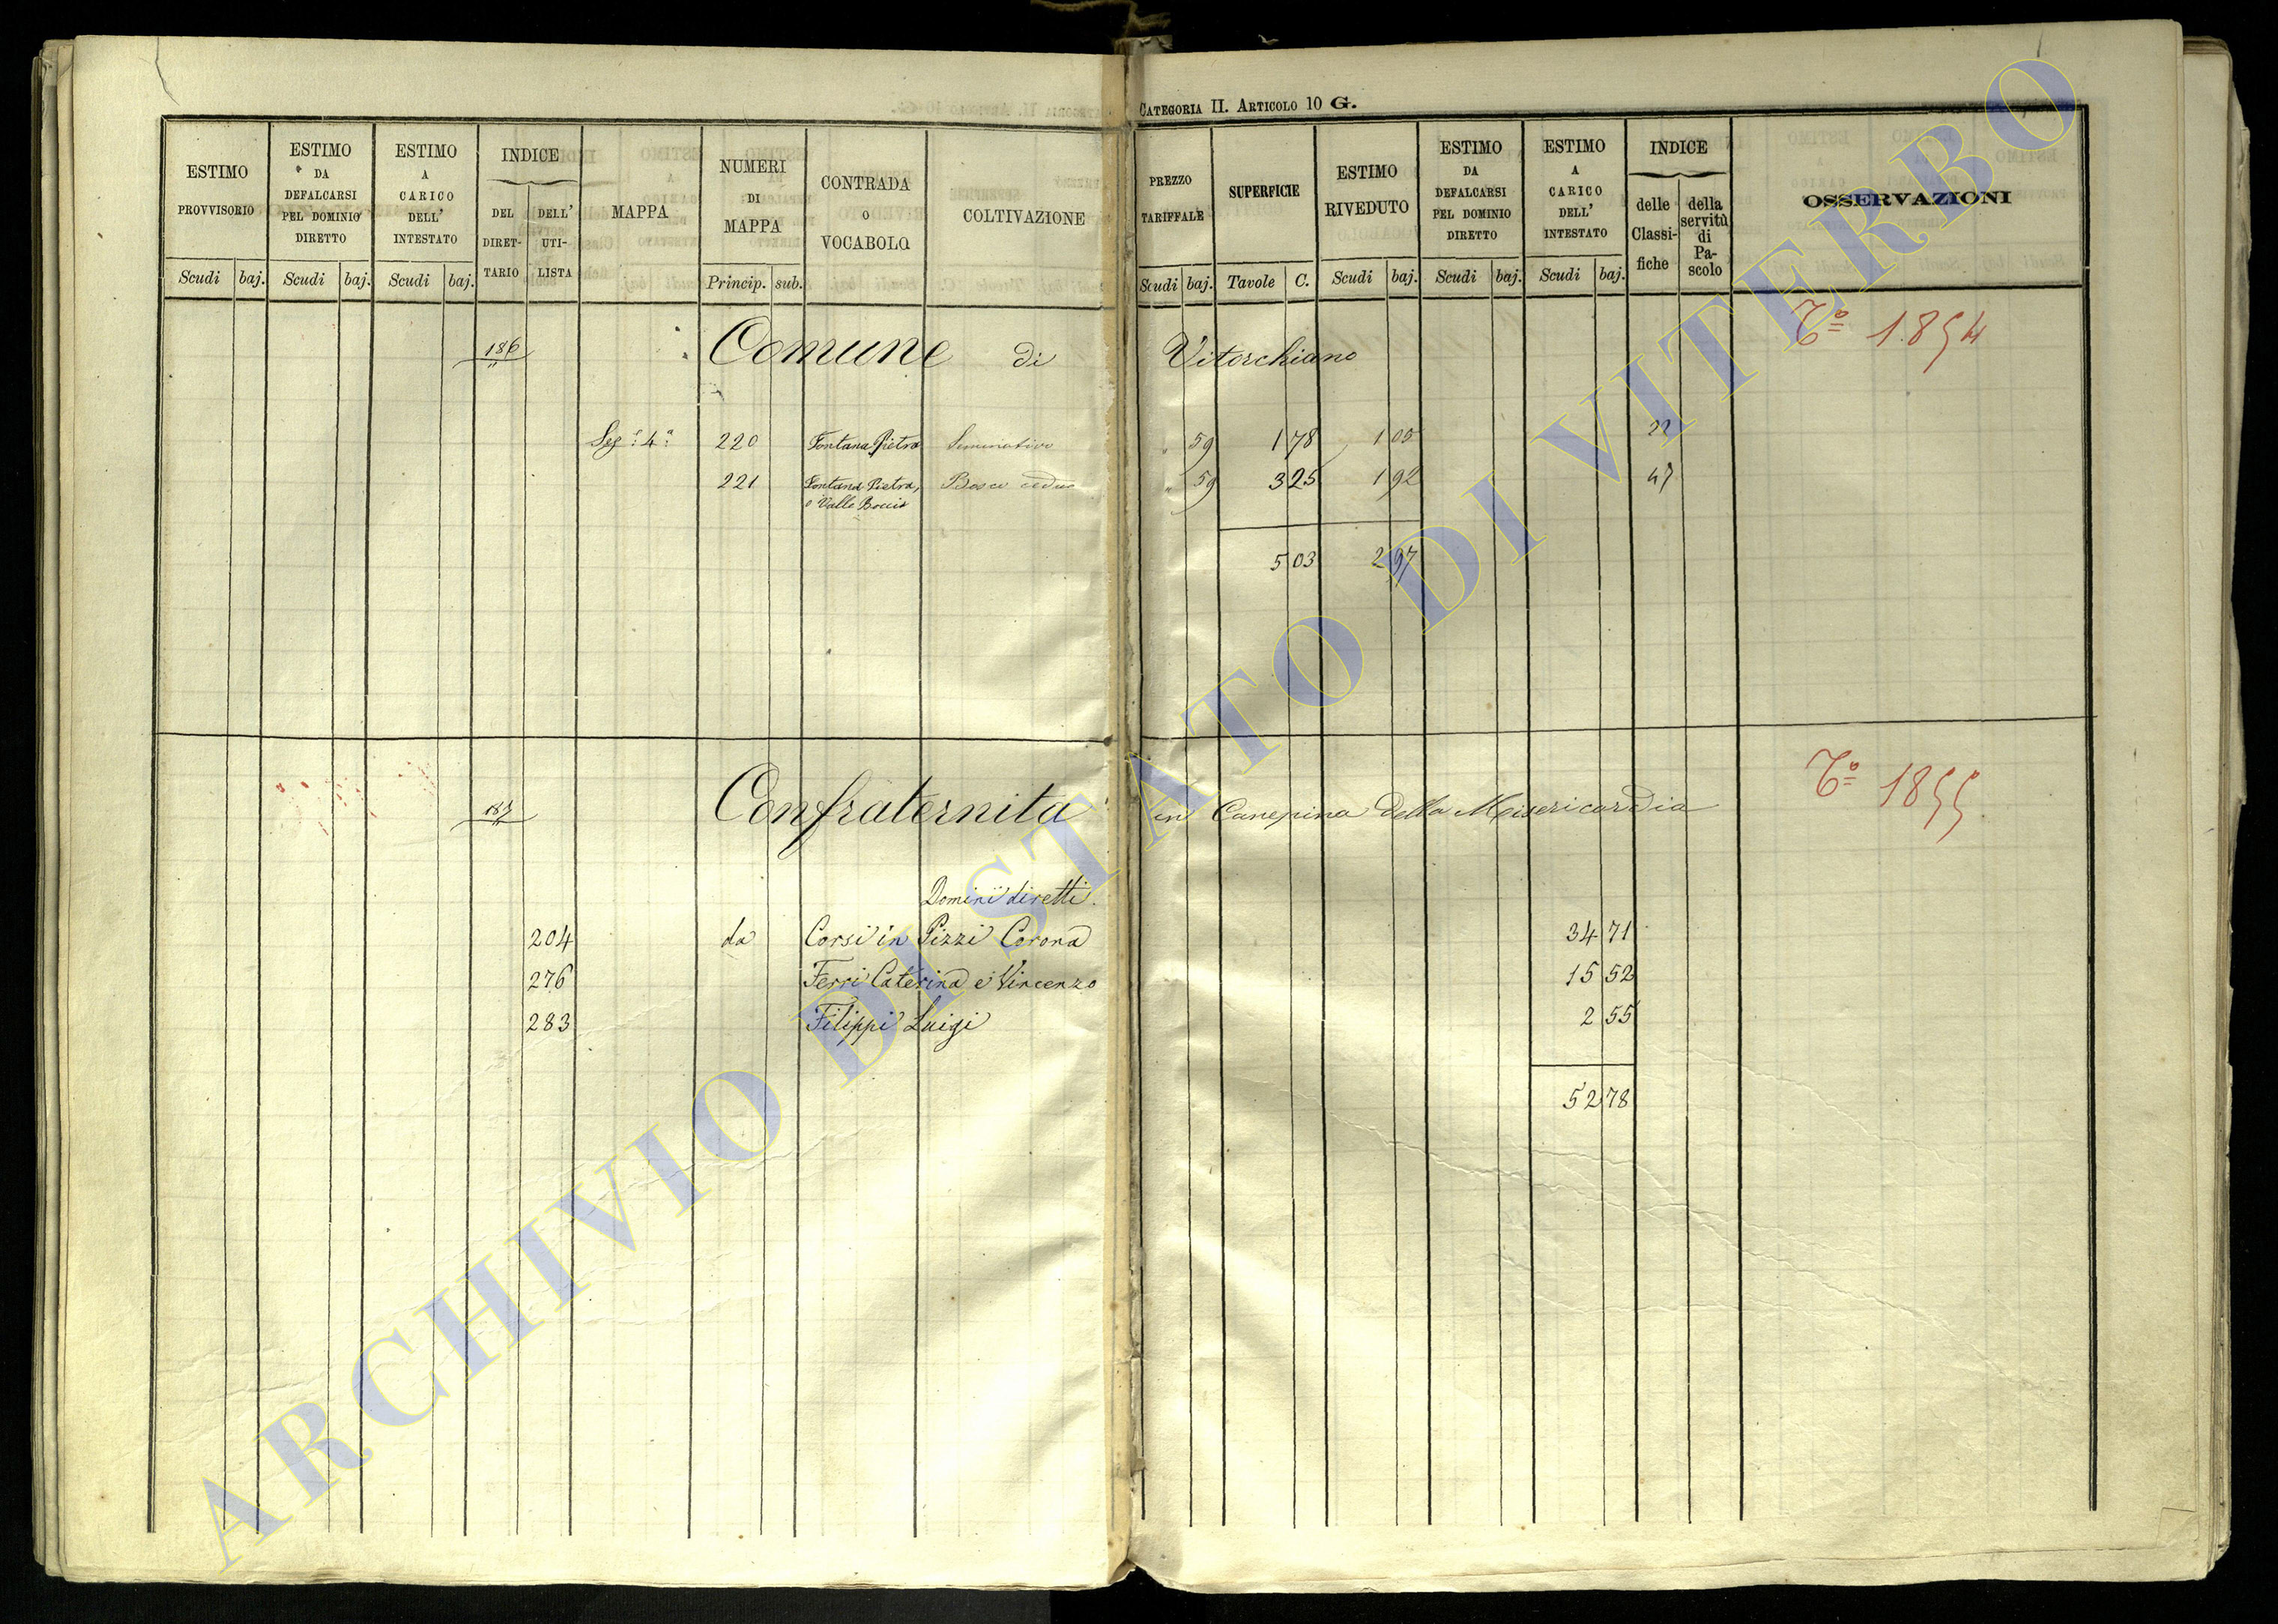 CATEGORIA II. ARTICOLO 10 G.
ESTIMO PROVVISORIO Scudi baj.
ESTIMO DA DEFALCARSI PEL DOMINIO DIRETTO Scudi baj.
ESTIMO A CARICO DELL' INTESTATO Scudi baj.
INDICE DEL DIRET-TARIO DELL' UTI-LISTA
MAPPA
NUMERI DI MAPPA Princip. sub.
CONTRADA O VOCABOLO
COLTIVAZIONE
PREZZO TARIFFALE Scudi baj.
SUPERFICIE Tavole C.
ESTIMO RIVEDUTO Scudi baj.
ESTIMO DA DEFALCARSI PEL DOMINIO DIRETTO Scudi baj.
ESTIMO A CARICO DELL' INTESTATO Scudi baj.
INDICE delle Classi-fiche della servitù di Pa-scolo
OSSERVAZIONI
186 Comune di Vitorchiano 1854
Sez. 4ª 220 Fontana Pietra Seminativo " 59 1 78 1 05 22
221 Fontana Pietra, Bosco ceduo " 59 3 25 1 92 47
o Valle
5 03 2 97
187 Confraternita in Canepina della Misericordia 1855
Dominii diretti.
204 da Corsi in Pizzi Corona 34 71
276 Ferri Caterina e Vincenzo 15 52
283 Filippi Luigi 2 55
52 78
ARCHIVIO DI STATO DI VITERBO